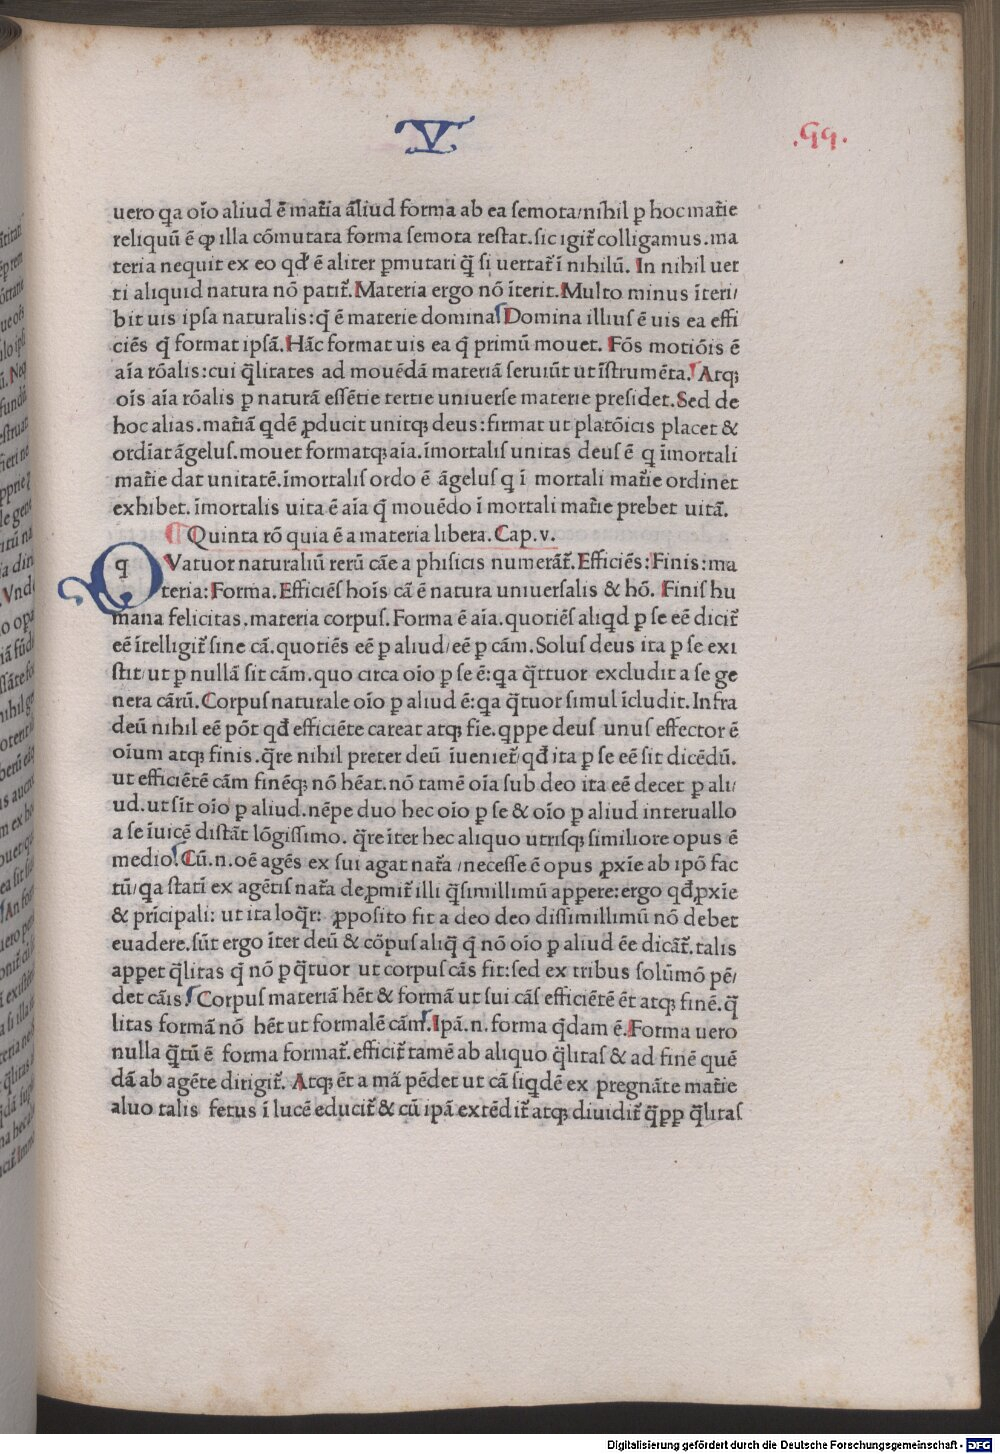 V
.99.
uero qa oĩo aliud ẽ mat̃ia ãliud forma ab ea semota/nihil ꝑ hoc mat̃ie
reliquũ ẽ ꝙ illa cõmutata forma semota restat.sic igit̃ colligamus.ma
teria nequit ex eo qď ẽ aliter ꝑmutari q̃ si uertat̃ ĩ nihilũ. In nihil uer
ti aliquid natura nõ patit̃. Materia ergo nõ ĩterit. Multo minus ĩteri/
bit uis ipsa naturalis:q̃ ẽ materie domina Domina illius ẽ uis ea effi
ciẽs q̃ format ipsã. Hãc format uis ea q̃ primũ mouet. Fõs motiõis ẽ
aĩa rõalis:cui q̃litates ad mouẽdã materiã seruiũt ut ĩstrumẽta. Atqꝫ
oĩs aĩa rõalis ꝑ naturã essẽtie tertie uniuerse materie presidet. Sed de
hoc alias.mat̃iã qdẽ ꝓducit unitqꝫ deus:firmat ut platõicis placet &
ordĩat ãgelus.mouet formatqꝫ aĩa.ĩmortalis unitas deus ẽ q ĩmortali
mat̃ie dat unitatẽ.ĩmortalis ordo ẽ ãgelus q ĩ mortali mat̃ie ordinẽt
exhibet. ĩmortalis uita ẽ aĩa q̃ mouẽdo ĩ mortali mat̃ie prebet uitã.
Quinta rõ quia ẽ a materia libera. Cap. v.
Q q Vatuor naturaliũ rerũ cãe a phisicis numerãt̃. Efficiẽs: Finis: ma
teria: Forma. Efficiẽs hoĩs cã ẽ natura uniuersalis & hõ. Finis hu
mana felicitas.materia corpus. Forma ẽ aĩa.quotiẽs aliqd ꝑ se eẽ dicit̃
eẽ ĩtelligit̃ sine cã.quotiẽs eẽ ꝑ aliud/eẽ ꝑ cãm. Solus deus ita ꝑ se exi
stit/ut ꝑ nullã sit cãm.quo circa oĩo ꝑ se ẽ:qa q̃ttuor excludit a se ge
nera cãrũ. Corpus naturale oĩo ꝑ aliud ẽ:qa q̃tuor simul ĩcludit. Infra
deũ nihil eẽ põt qđ efficiẽte careat atqꝫ fie.qppe deus unus effector ẽ
oĩum atqꝫ finis.q̃re nihil preter deũ ĩuenier̃ qđ ita ꝑ se eẽ sit dicẽdũ.
ut efficiẽtẽ cãm finẽqꝫ nõ hẽat.nõ tamẽ oĩa sub deo ita eẽ decet ꝑ ali/
ud.ut sĩt oĩo ꝑ aliud.nẽpe duo hec oĩo ꝑ se & oĩo ꝑ aliud interuallo
a se ĩuicẽ distãt lõgissimo. q̃re ĩter hec aliquo utrisqꝫ similiore opus ẽ
medio. Cũ.n.oẽ agẽs ex sui agat nat̃a /necesse ẽ opus ꝓxĩe ab ipõ fac
tũ/qa stati ex agẽtis nat̃a deꝓmit̃ illi q̃simillimũ appere:ergo qđ ꝓxĩe
& prĩcipali: ut ita loq̃r: ꝓposito fit a deo deo dissimillimũ nõ debet
euadere.sũt ergo ĩter deũ & cõpus aliq̃ q̃ nõ oĩo ꝑ aliud ẽe dicãt̃.talis
appet q̃litas q̃ nõ ꝑ q̃tuor ut corpus cãs fit:sed ex tribus solũmõ pẽ/
det cãis. Corpus materiã hẽt & formã ut sui cãs efficiẽtẽ ẽt atqꝫ finẽ.q̃
litas formã nõ hẽt ut formalẽ cãm. Ipã.n.forma q̃dam ẽ. Forma uero
nulla q̃tũ ẽ forma format̃.efficit̃ tamẽ ab aliquo q̃litas & ad finẽ quẽ
dã ab agẽte dirigit̃. Atqꝫ ẽt a mã pẽdet ut cã siqdẽ ex pregnãte mat̃ie
aluo talis fetus ĩ lucẽ educit̃ & cũ ipã extẽdit̃ atqꝫ diuidit̃ q̃ꝑꝑ q̃litas
Digitalisierung gefördert durch die Deutsche Forschungsgemeinschaft - DFG